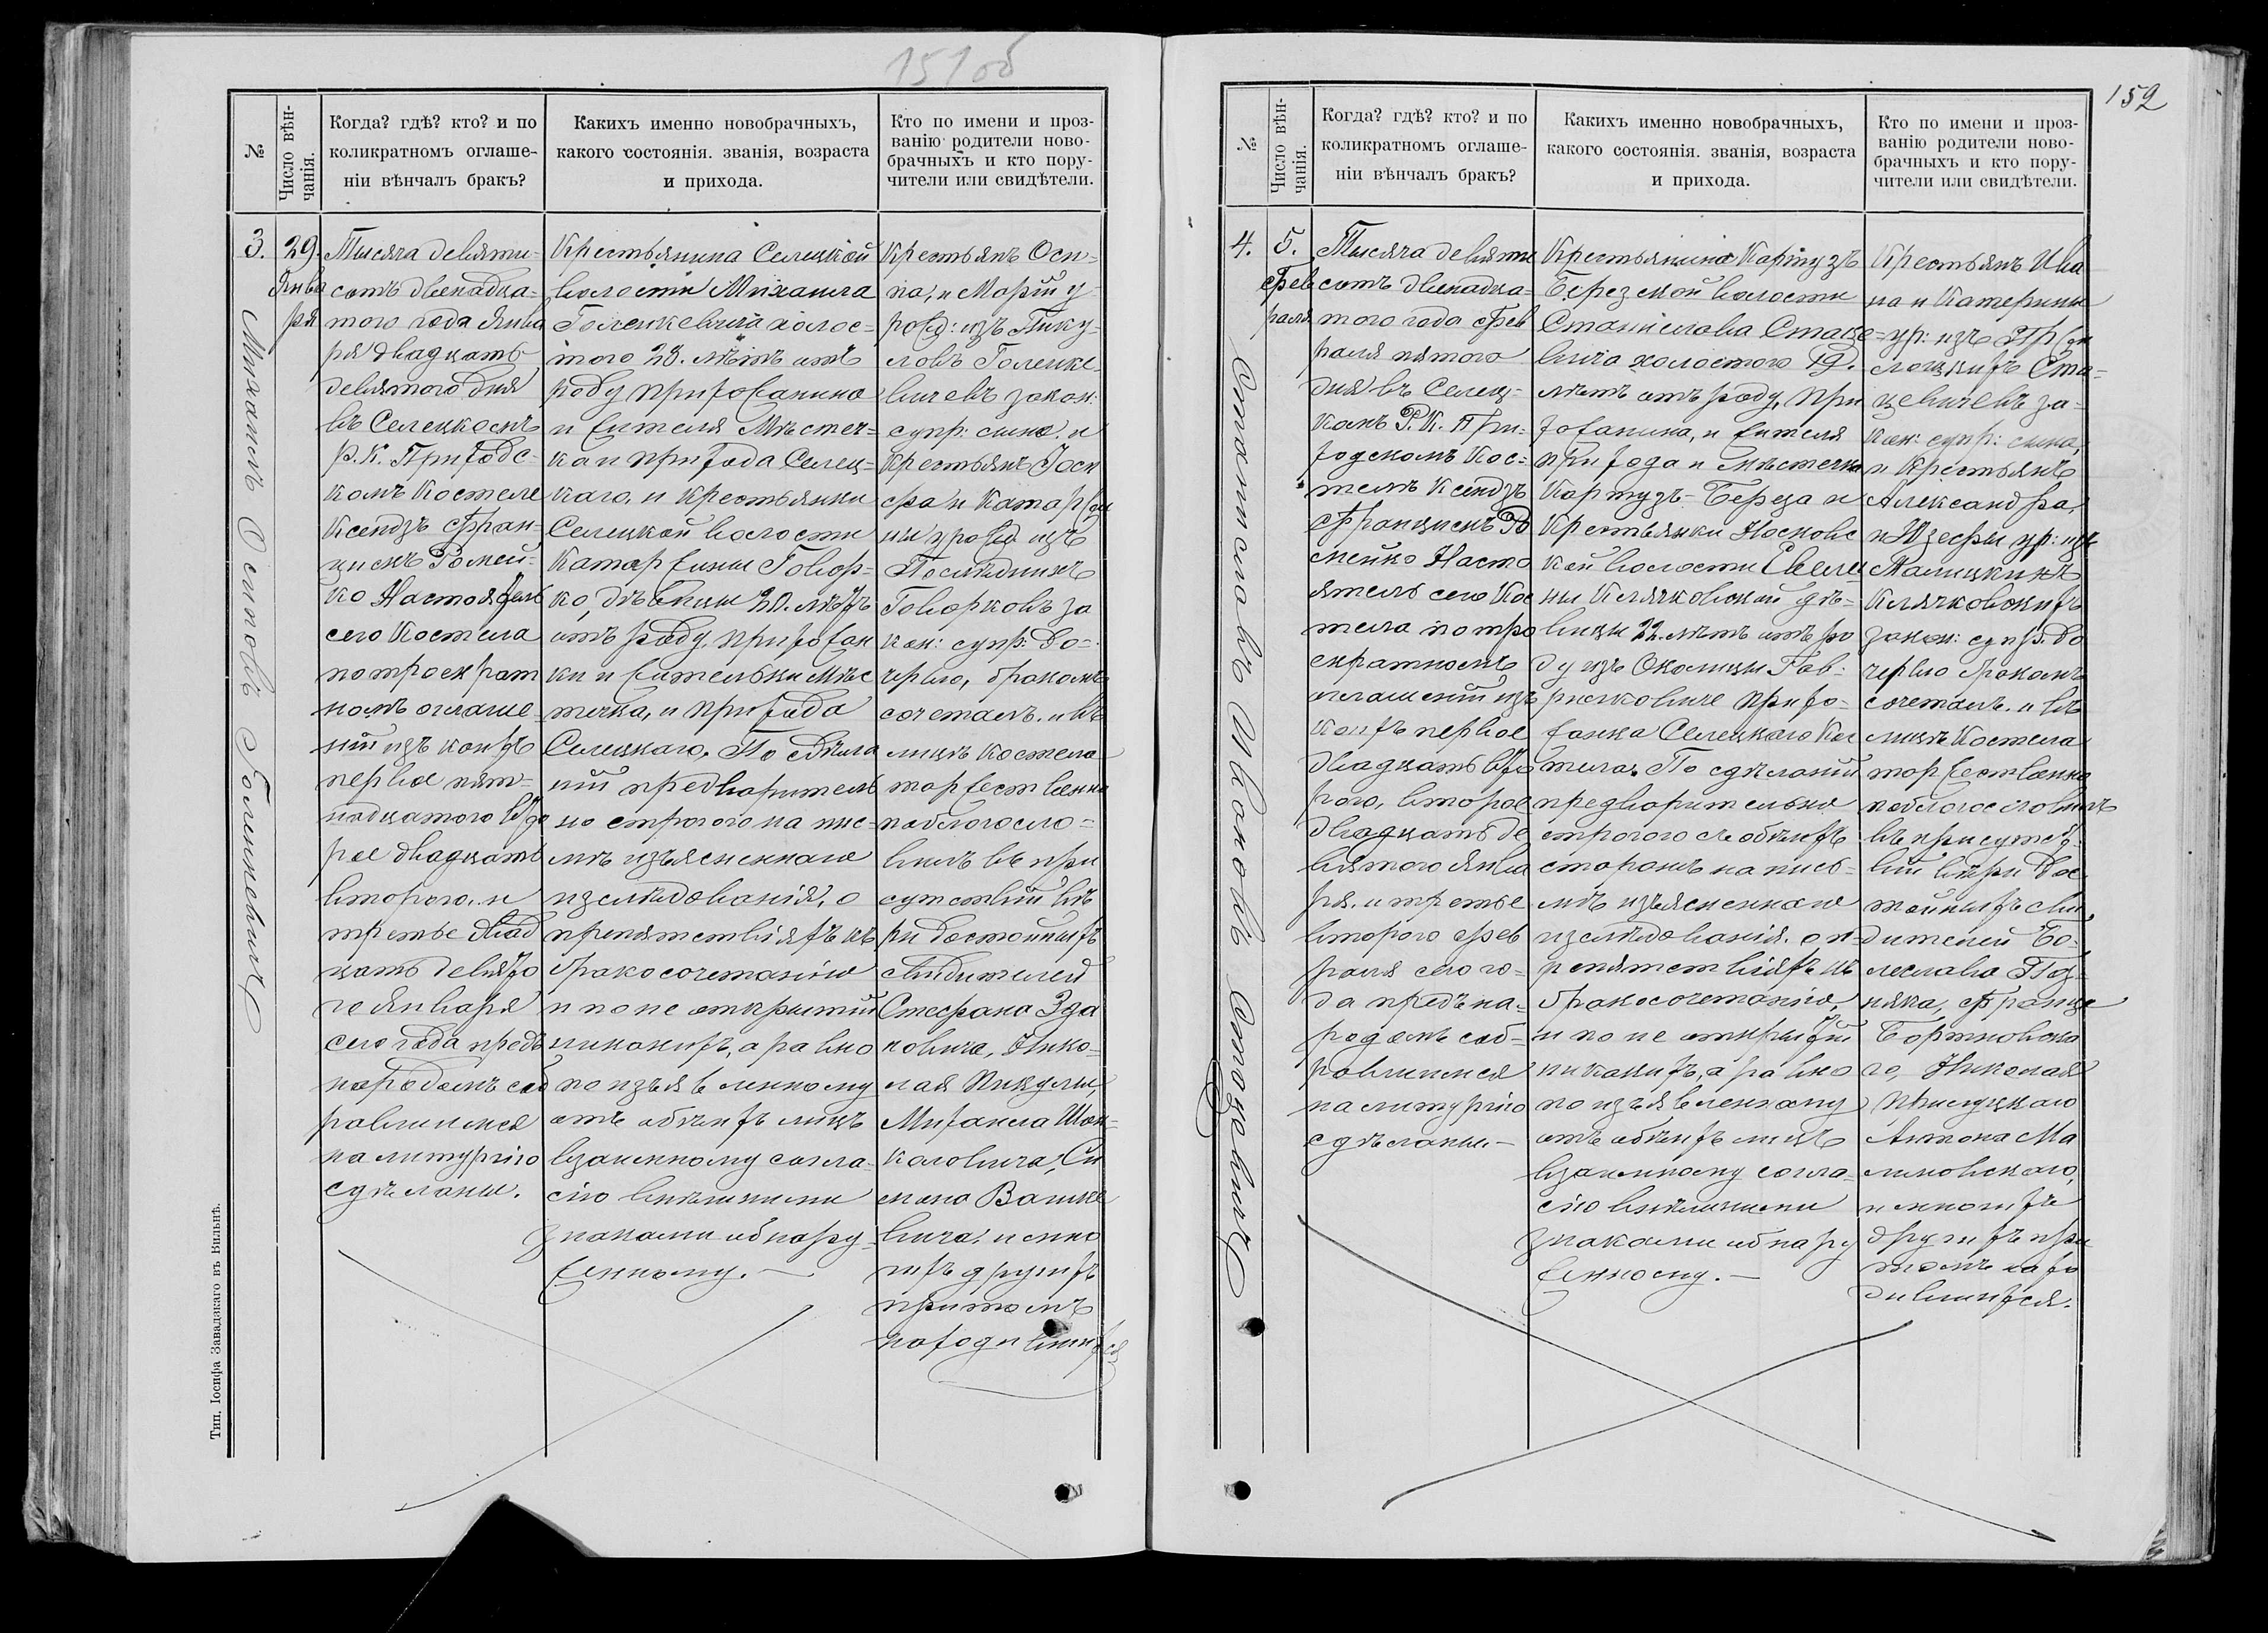 151 об
№
Число вѣн-
чанія.
Когда? гдѣ? кто? и по
коликратномъ оглаше-
ніи вѣнчалъ бракъ?
Какихъ именно новобрачныхъ,
какого состоянія. званія, возраста
и прихода.
Кто по имени и проз-
ванію родители ново-
брачныхъ и кто пору-
чители или свидѣтели.
3.
29.
Янва
ря
Михаилъ Осиповъ Голенкевичъ
Тысяча девяти-
сотъ двѣнадца-
того года Янва
ря двадцать
девятого дня
въ Селецкомъ
Р. К. Приходс-
комъ Костеле
Ксендзъ Фран-
цискъ Ромей-
ко Настоятель
сего Костела
по троекрат
номъ оглаше-
ніи изъ коихъ
первое пят-
надцатого вто
рое двадцать
второго. и
третье двад
цать девято
го Января
сего года предъ
народомъ соб
равшимся
на литургію
сдѣланы.
Крестьянина Селецкой
волости Михаила
Голенкевича холос-
того 23. лѣтъ отъ
роду прихожанина
и жителя Мѣстеч-
ка и прихода Селец-
каго, и крестьянки
Селецкой волости
Катаржины Говор-
ко, дѣвицы 20. лѣтъ
отъ роду, прихожан
ки и жительки мѣс
течка, и прихода
Селецкаго. По сдѣла
ніи предварительно
но строгого на пис-
мѣ изъясненнаго
изслѣдованія, о
препятствіяхъ къ
бракосочетанію
и по не открытіи
никакихъ, а равно
по изъявленному
отъ обѣихъ лицъ
взаимному согла-
сію внѣшними
знаками обнару
женному. —
Крестьянъ Оси-
па, и Маріи у-
рожд: изъ Пику-
ловъ Голенке-
вичевъ закон:
супр: сына. и
крестьянъ Іоси
фа и Катаржи
ны урожд изъ
Говорковъ за
кон: супр: до-
черью, бракомъ
сочеталъ. и въ
лицѣ Костела
торжественно
поблагосло-
вилъ въ при
сутствіи вѣ
ры достойныхъ
свидѣтелей
Стефана Зда
новича, Нико-
лая Пикулы,
Михаила Шан-
каловича, Си
мона Вашке
вича, и мно
гихъ другихъ
притомъ
находившихся
Тип. Іосифа Завадзкаго въ Вильнѣ.
152
№
Число вѣн-
чанія.
Когда? гдѣ? кто? и по
коликратномъ оглаше-
ніи вѣнчалъ бракъ?
Какихъ именно новобрачныхъ,
какого состоянія. званія, возраста
и прихода.
Кто по имени и проз-
ванію родители ново-
брачныхъ и кто пору-
чители или свидѣтели.
4.
5.
Фев
раля
Станиславъ Ивановъ Стацевичъ
Тысяча девяти
сотъ двѣнадца-
того года Фев
раля пятого
дня въ Селец-
комъ Р. К. При-
ходскомъ Кос-
телѣ Ксендзъ
Францискъ Ро
мейко Насто
ятель сего Кос
тела по тро
екратномъ
оглашеніи изъ
коихъ первое
двадцать вто
рого, второе
двадцать де
вятого Янва
ря. и третье
второго Фев
раля сего го-
да предъ на-
родомъ соб-
равшимся
на литургію
сдѣланы. —
Крестьянина Картузъ
Березской волости
Станислава Стаце-
вича холостого 19.
лѣтъ отъ роду, при
хожанина, и жителя
прихода и мѣстечка
Картузъ-Береза и
Крестьянки Носковс
кой волости Евеле
ны Клячковской дѣ-
вицы 22. лѣтъ отъ ро
ду изъ Околицы Гав-
рильковиче прихо-
жанка Селецкаго Кос
тела. По сдѣланіи
предварительно
строгого съ обѣихъ
сторонъ на пись-
мѣ изъясненнаго
изслѣдованія. о п-
репятствіяхъ къ
бракосочетанію,
и по не открытіи
никакихъ, а равно
по изъявленному
отъ обѣихъ лицъ
взаимному согла-
сію внѣшними
знаками обнару
женному. —
Крестьянъ Ива
на и Катерины
ур: изъ
Ста-
цевичевъ за-
кон: супр: сына,
и Крестьянъ
Александра,
и Юзефы ур: изъ
Клячковскихъ
закон: супр: до
черью бракомъ
сочеталъ. и въ
лицѣ Костела
торжественно
поблагословилъ
въ присутст-
віи вѣры дос
тойныхъ сви-
дѣтелей Бо-
леслава Поз-
няка, Франца
Бортновска
го, Николая
Прилуцкаго
Антона Ма
линовскаго,
и многихъ
другихъ при
томъ нахо
дившихся.